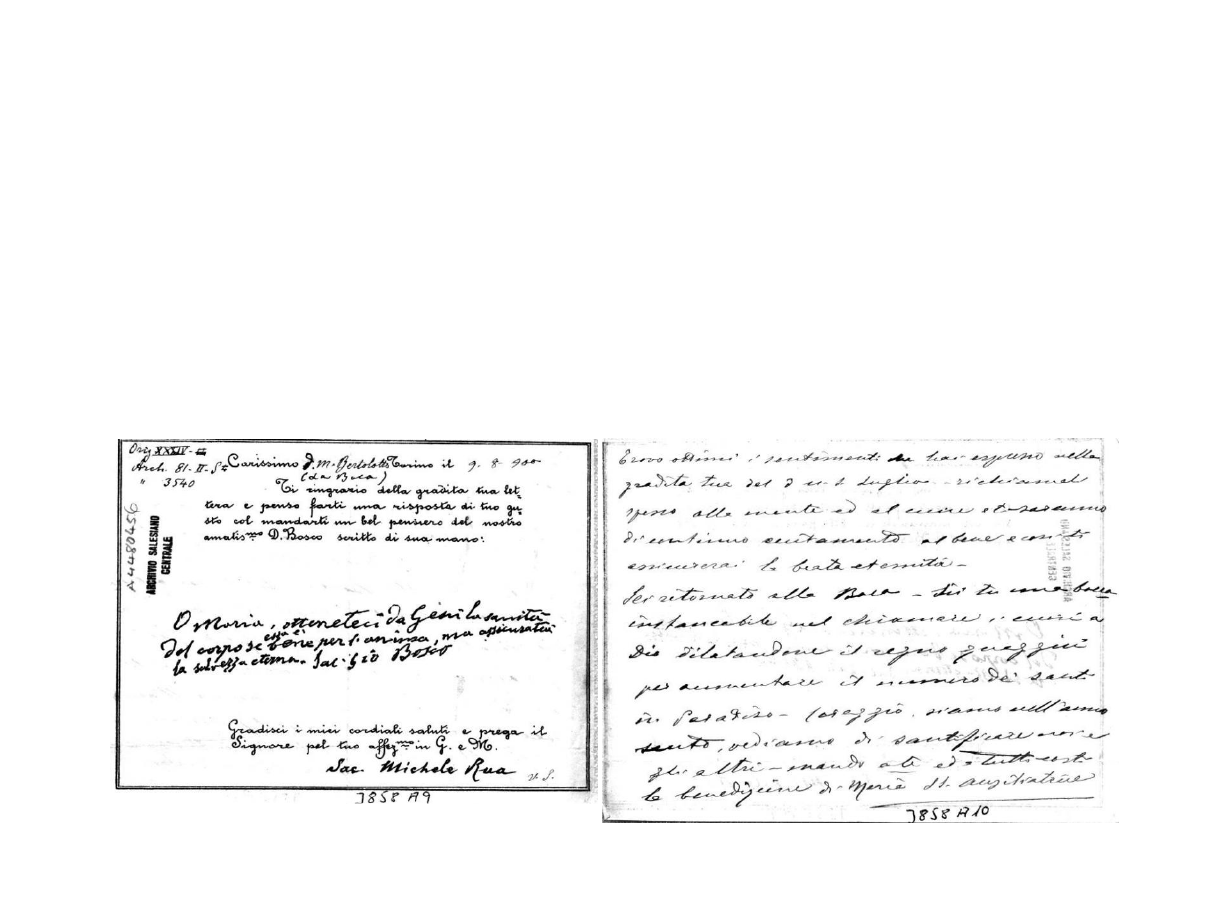 Orig XXXIV-II
Arch. 81. II. S:
" 3540
A4480456
ARCHIVIO SALESIANO
CENTRALE
Carissimo D. M. Bertolotto Torino il 9. 8 900
(da Boca)
Ti ringrazio della gradita tua let-
tera e penso farti una risposta di tuo gu-
sto col mandarti un bel pensiero del nostro
amatis.mo D. Bosco scritto di sua mano:
O Maria, otteneteci da Gesù la sanità
del corpo se essa è bene per l'anima, ma assicurateci
la salvezza eterna. Sac. Gio Bosco
Gradisci i miei cordiali saluti e prega il
Signore pel tuo affez.mo in G. e M.
Sac. Michele Rua
v. S.
J858 A9
Trovo ottimi i sentimenti che hai espresso nella
gradita tua del luglio - richiamali
spesso alla mente ed al cuore e ti saranno
di continuo eccitamento al bene e così ti
assicurerai la beata eternità -
Sei ritornato alla Boca - Sii tu una bocca
instancabile nel chiamare i cuori a
Dio dilatandone il regno quaggiù
per aumentare il numero dei santi
in Paradiso - Coraggio, siamo nell'anno
santo, vediamo di santificare noi e
gli altri - mando a te ed a tutti costì
la benedizione di Maria SS. Ausiliatrice
J858 A10